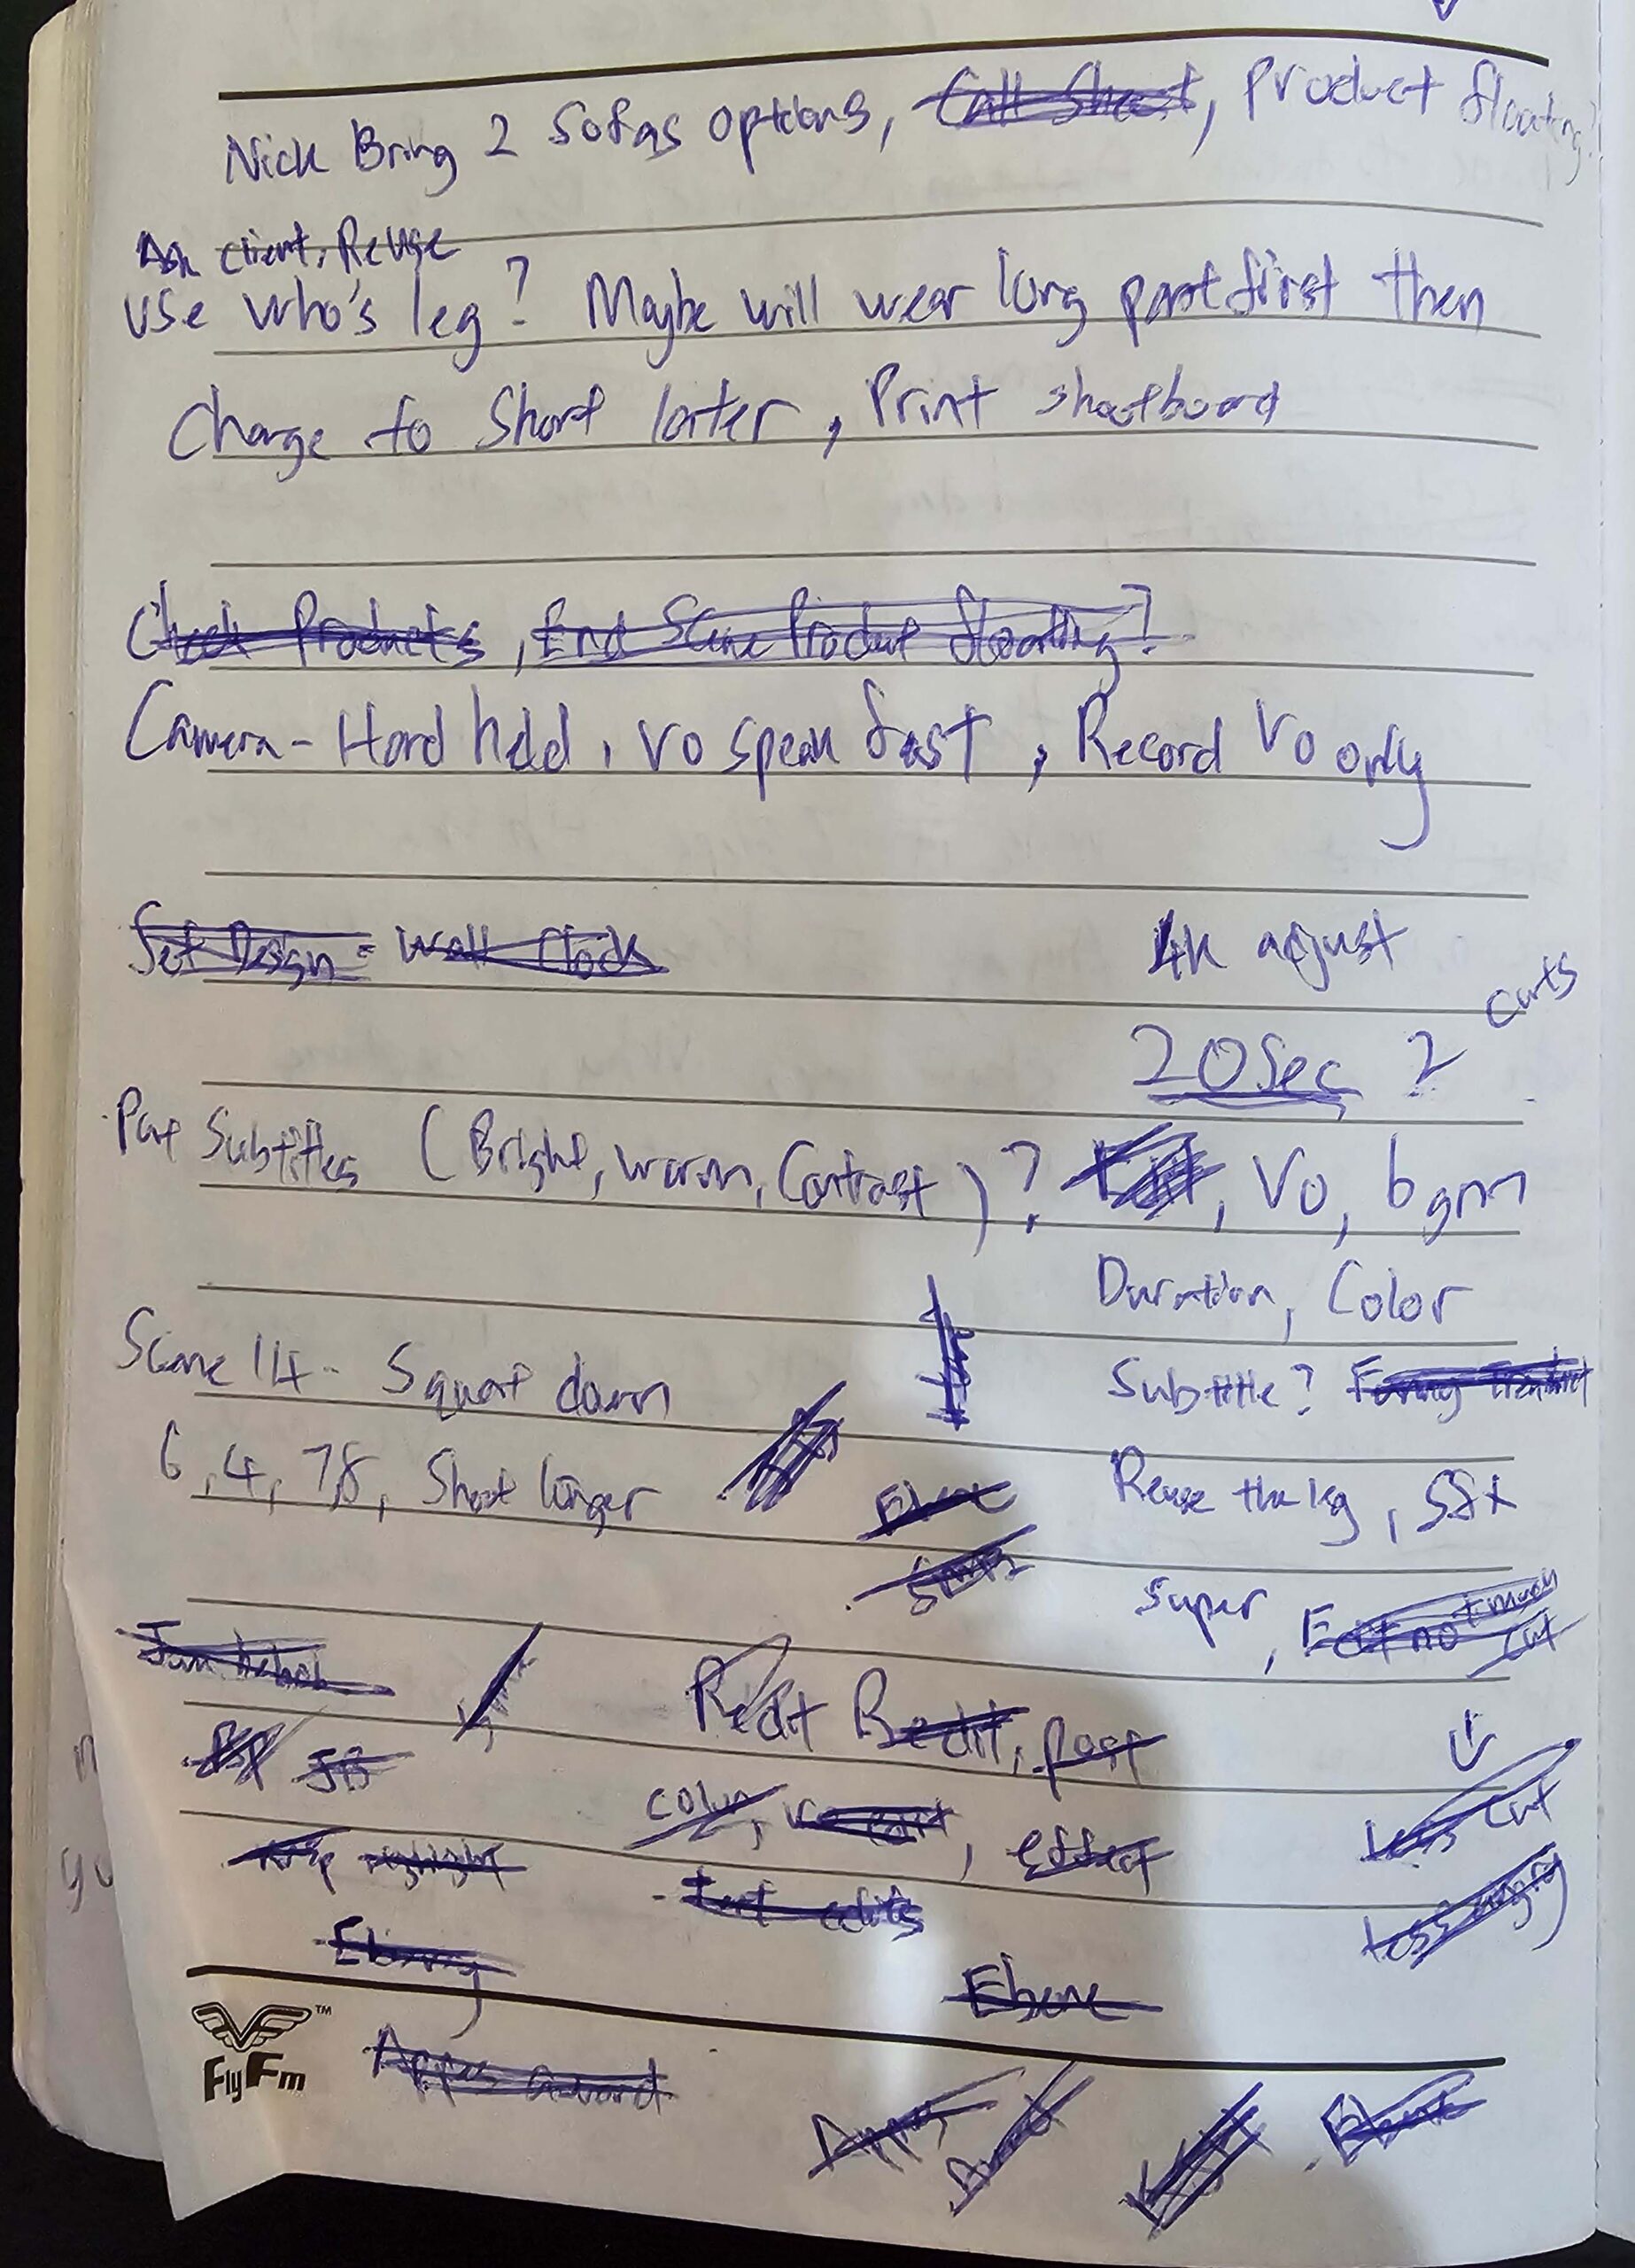 Nick Bring 2 Sofas options, Call Sheet, Product floating?
Ask client, Reuse
use who's leg? Maybe will wear long pant first then
Change to Short later, Print shootboard
Check Products, End Scene Product floating?
Camera - Hand held, VO speak fast, Record VO only
Set Design = Wall Clock
4k adjust
20Sec 2 cuts
Put Subtitles (Bright, warm, Contrast)? , VO, bgm
Duration, Color
Scene 14 - Squat down
Subtitle?
6, 4, 7,8, Shoot longer
Reuse the leg, Sfx
Ebene
Super, Edit not much cut
Redit Redit, post
JB
Color, effect
Less cut
highlight
edits
Less angry
Ebene
FlyFm™
Appes award